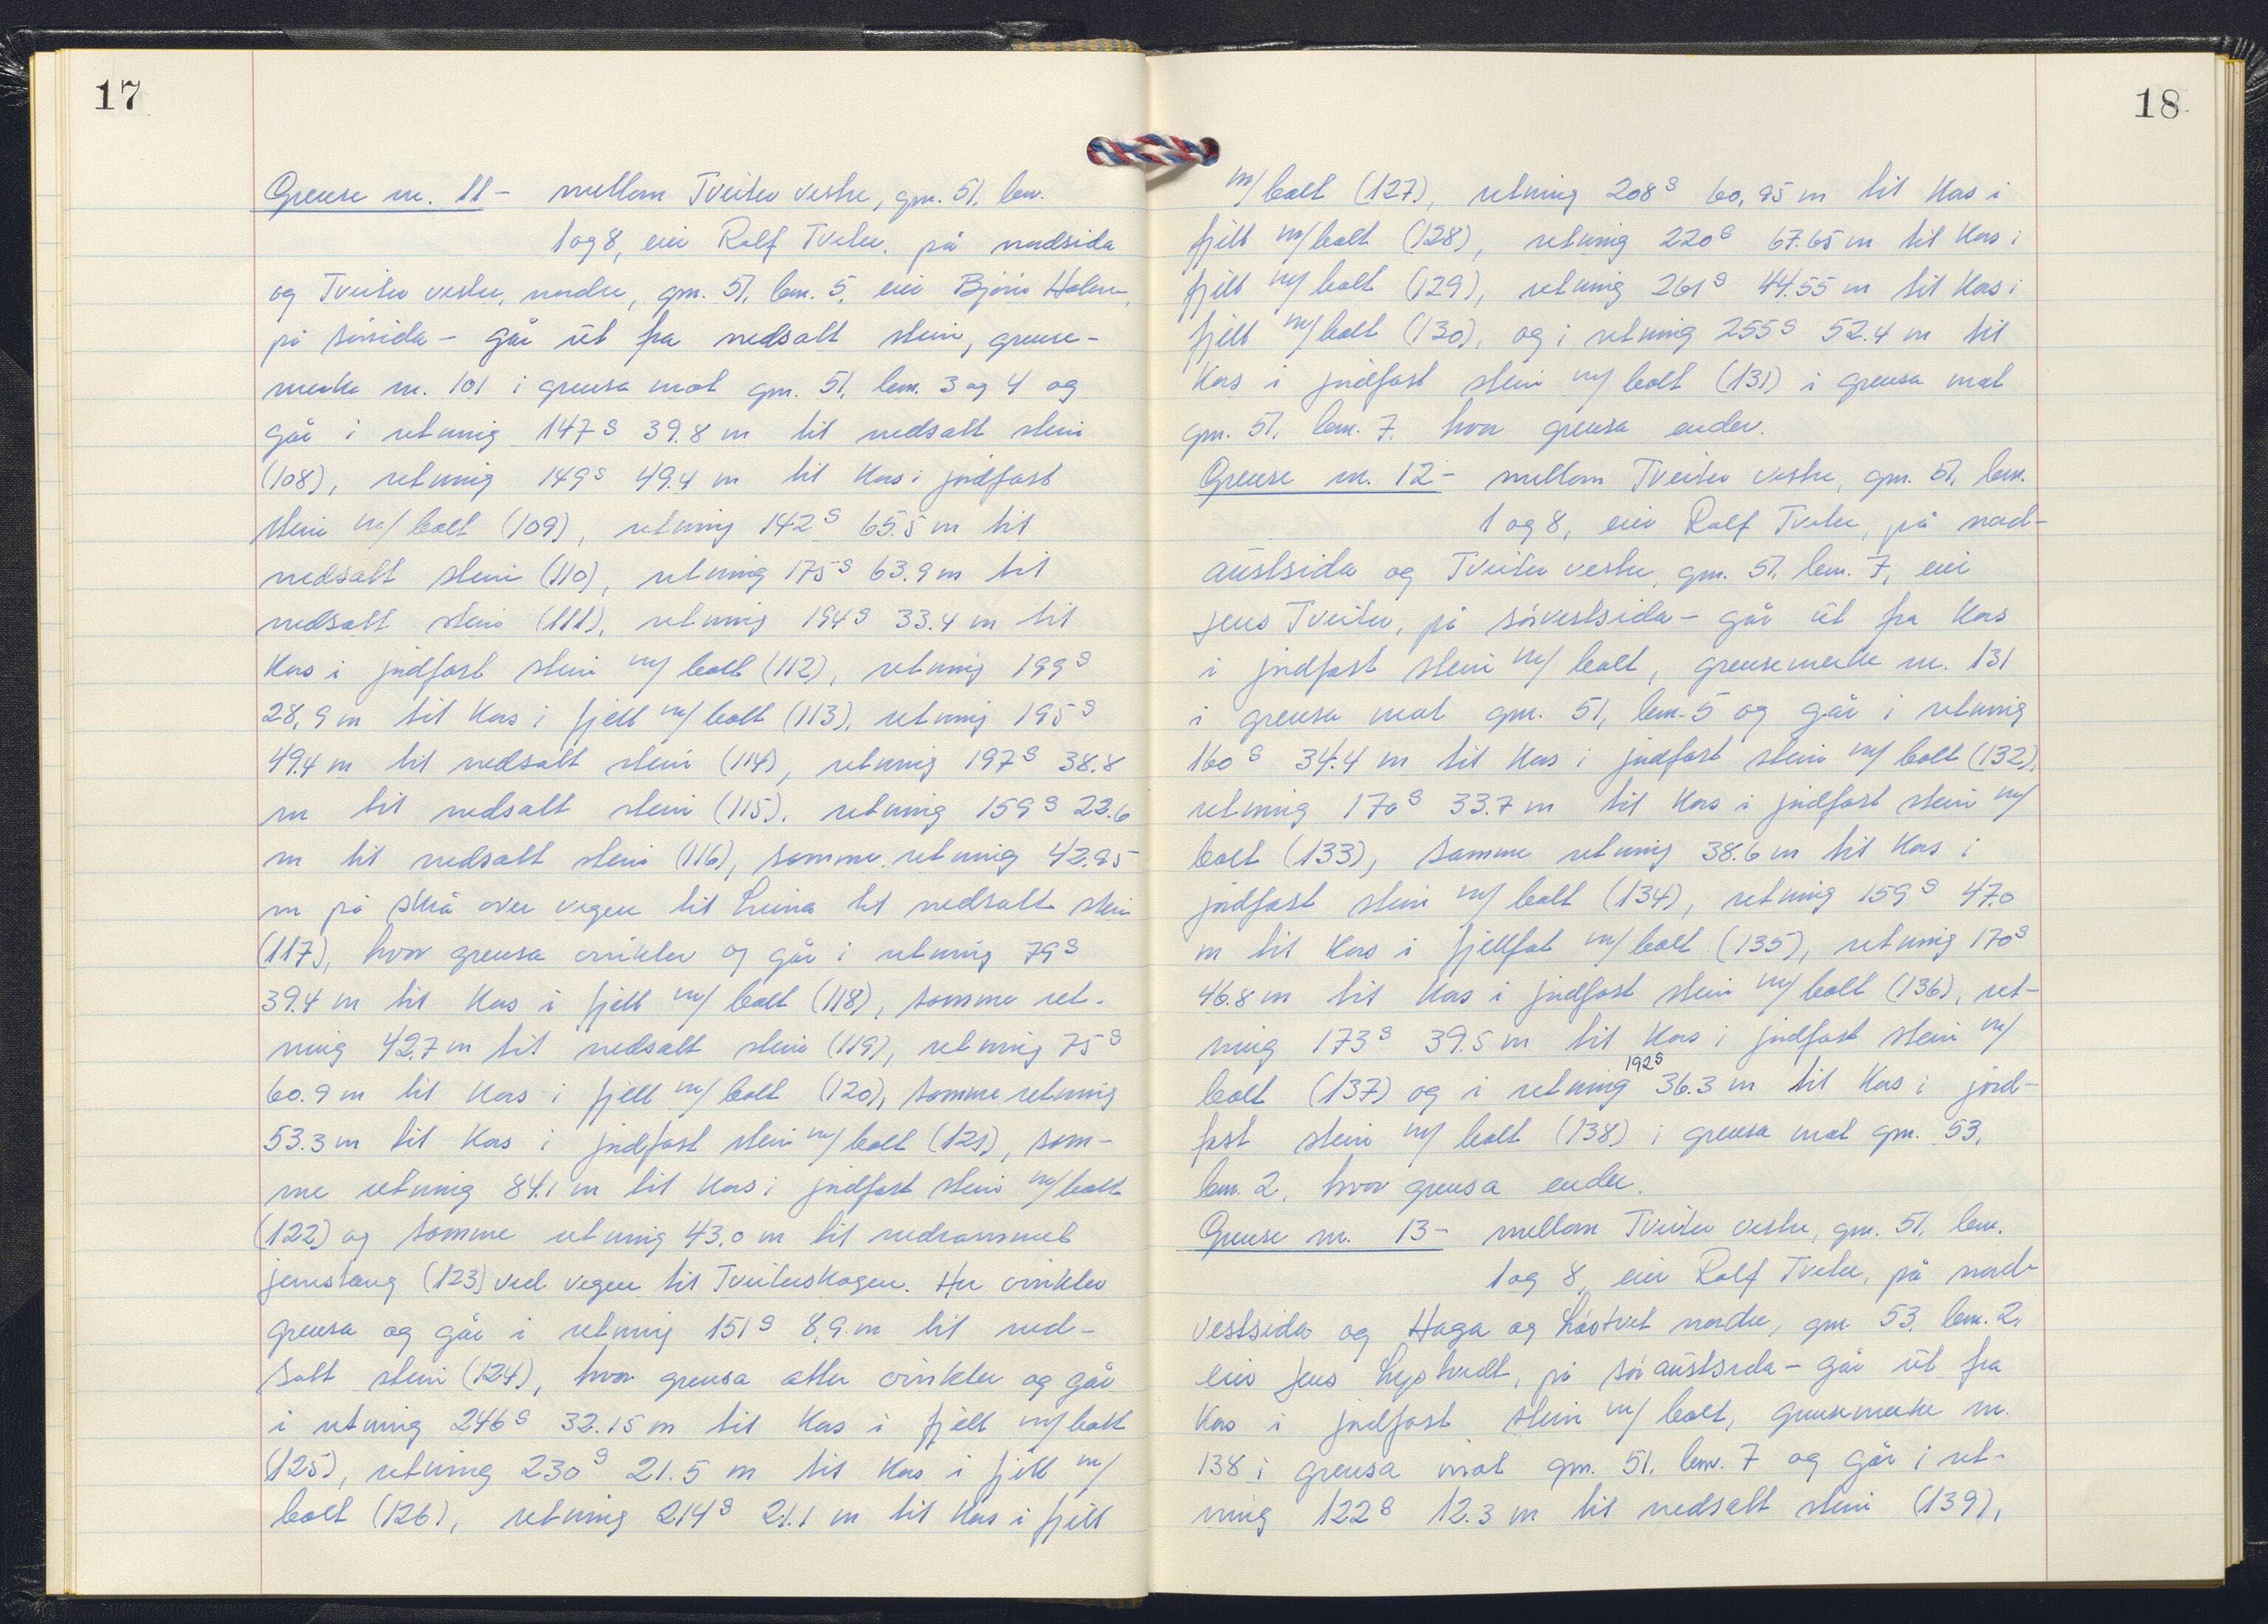 17
Grense nr. 11 - mellom Tveiter vestre, gnr. 51, bnr.
1 og 8, eier Rolf Tveter, på nordsida
og Tveiter vestre, nordre, gnr. 51, bnr. 5, eier Bjørn Holene,
på sørsida - går ut fra nedsatt stein, grense-
merke nr. 101 i grensa mot gnr. 51, bnr. 3 og 4 og
går i retning 147g 39.8 m til nedsatt stein
(108), retning 149g 49.4 m til kors i jordfast
stein m/ bolt (109), retning 142g 65.5 m til
nedsatt stein (110), retning 175g 63.9 m til
nedsatt stein (111), retning 194g 33.4 m til
kors i jordfast stein m/ bolt (112), retning 199g
28,9 m til kors i fjell m/ bolt (113), retning 195g
49.4 m til nedsatt stein (114), retning 197g 38.8
m til nedsatt stein (115), retning 159g 23.6
m til nedsatt stein (116), samme retning 42.95
m på skrå over vegen til Linna til nedsatt stein
(117), hvor grensa vinkler og går i retning 79g
39.4 m til kors i fjell m/ bolt (118), samme ret-
ning 42.7 m til nedsatt stein (119), retning 75g
60.9 m til kors i fjell m/ bolt (120), samme retning
53.3 m til kors i jordfast stein m/ bolt (121), sam-
me retning 84.1 m til kors i jordfast stein m/ bolt
(122) og samme retning 43.0 m til nedrammet
jernstang (123) ved vegen til Tveiterskogen. Her vinkler
grensa og går i retning 151g 8,9 m til ned-
satt stein (124), hvor grensa atter vinkler og går
i retning 246g 32.15 m til kors i fjell m/ bolt
(125), retning 230g 21.5 m til kors i fjell m/
bolt (126), retning 214g 21.1 m til kors i fjell
18
m/ bolt (127), retning 208g 60,95 m til kors i
fjell m/ bolt (128), retning 220g 67.65 m til kors i
fjell m/ bolt (129), retning 261g 44.55 m til kors i
fjell m/ bolt (130), og i retning 255g 52.4 m til
kors i jordfast stein m/ bolt (131) i grensa mot
gnr. 51, bnr. 7, hvor grensa ender.
Grense nr. 12 - mellom Tveiter vestre, gnr. 51, bnr.
1 og 8, eier Rolf Tveter, på nord-
austsida og Tveiter vestre, gnr. 51, bnr. 7, eier
Jens Tveiter, på sørvestsida - går ut fra kors
i jordfast stein m/ bolt, grensemerke nr. 131
i grensa mot gnr. 51, bnr. 5 og går i retning
160g 34.4 m til kors i jordfast stein m/ bolt (132),
retning 170g 33.7 m til kors i jordfast stein m/
bolt (133), samme retning 38.6 m til kors i
jordfast stein m/ bolt (134), retning 159g 47.0
m til kors i fjellfot m/ bolt (135), retning 170g
46.8 m til kors i jordfast stein m/ bolt (136), ret-
ning 173g 39.5 m til kors i jordfast stein m/
bolt (137) og i retning 192g 36.3 m til kors i jord-
fast stein m/ bolt (138) i grensa mot gnr. 53,
bnr. 2, hvor grensa ender.
Grense nr. 13 - mellom Tveiter vestre, gnr. 51, bnr.
1 og 8, eier Rolf Tveter, på nord-
vestsida og Haga og Løstvet nordre, gnr. 53, bnr. 2,
eier Jens Lystvedt, på søraustsida - går ut fra
kors i jordfast stein m/ bolt, grensemerke nr.
138 i grensa mot gnr. 51, bnr. 7 og går i ret-
ning 122g 12.3 m til nedsatt stein (139),